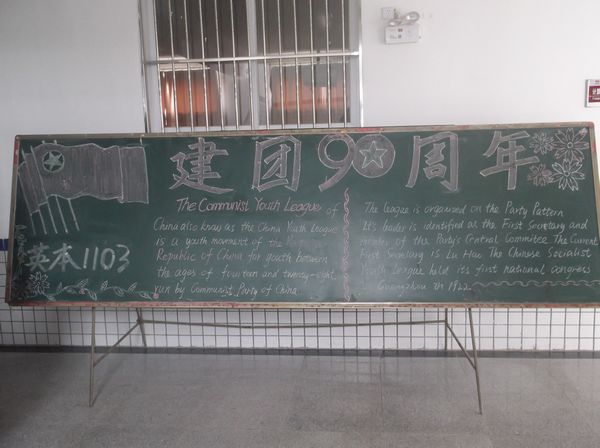 建团90周年
英本1103
The Communist Youth League of
China also know as the China Youth League
is a youth movement of the
Republic of China for youth between
the ages of fourteen and twenty-eight,
run by Communist Party of China.
The league is organized on the Party Pattern
It's leader is identified as the First Secretary and
member of the Party's Central Committee The Current
First Secretary is Lu Hao The Chinese Socialist
Youth League held its first national congress
Guangzhou in 1922.